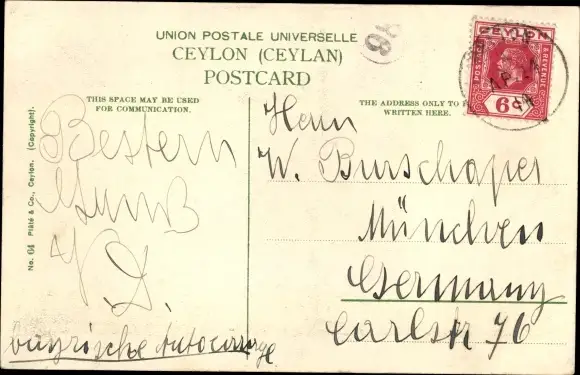 UNION POSTALE UNIVERSELLE
CEYLON (CEYLAN)
POSTCARD
THIS SPACE MAY BE USED
FOR COMMUNICATION.
THE ADDRESS ONLY TO
WRITTEN HERE.
CEYLON
POSTAGE
& REVENUE
6 c
No. 64 Plâté & Co., Ceylon. (Copyright).
Bestern
Gruß
Herrn
W. Burschaper
München
Germany
Carlstr 76
bayrische